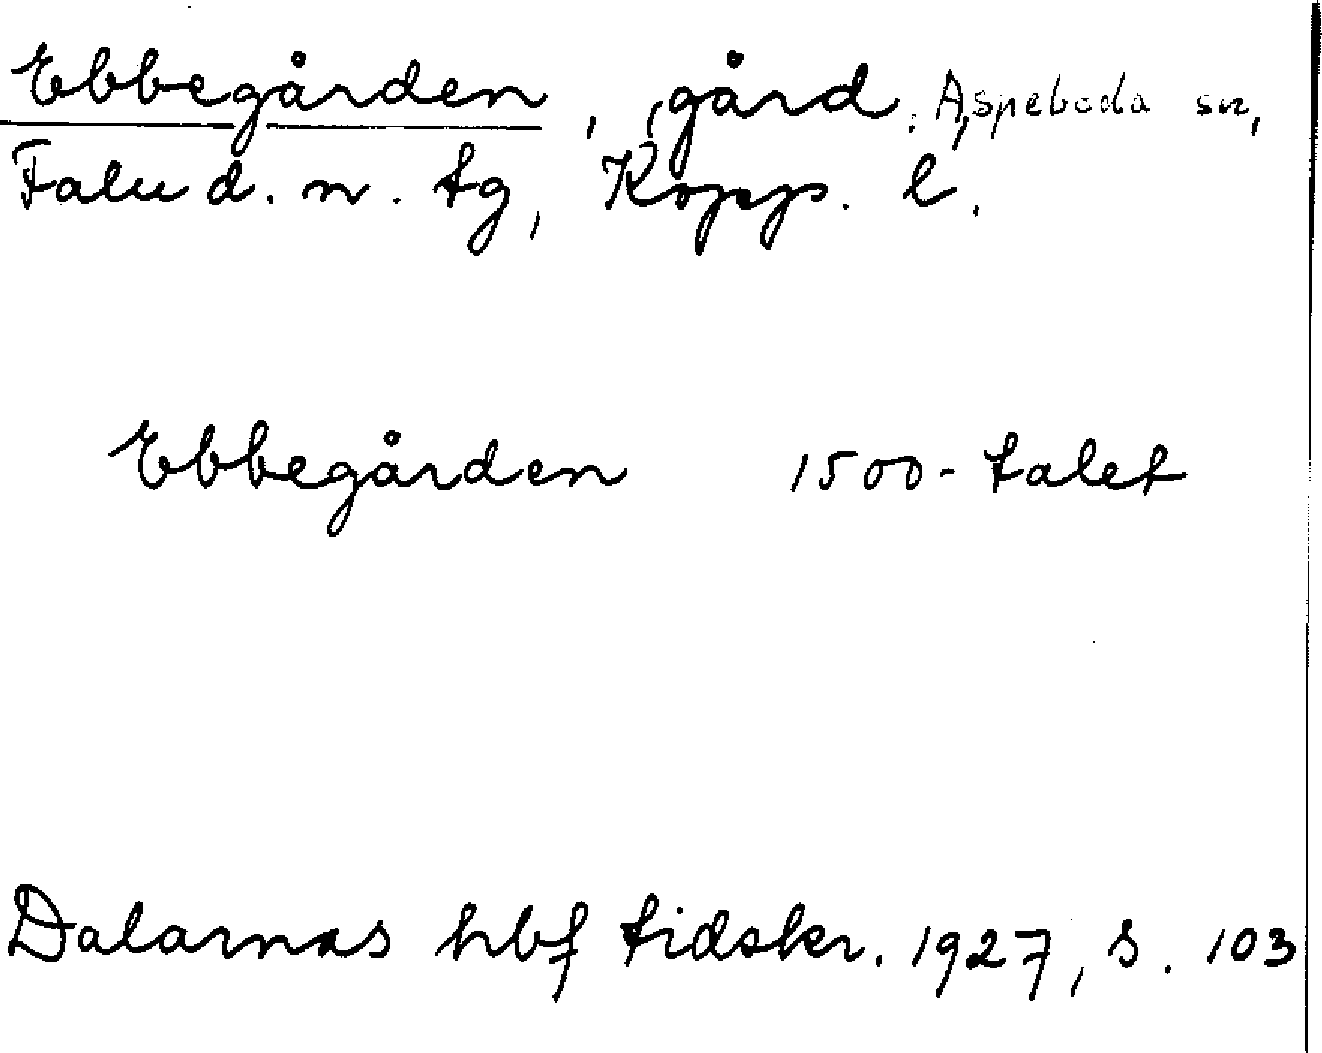 Ebbegården, gård, Aspeboda sn,
Falu d. n. tg, Kopp. l.
Ebbegården 1500-talet
Dalarnas hbf tidskr. 1927, s. 103